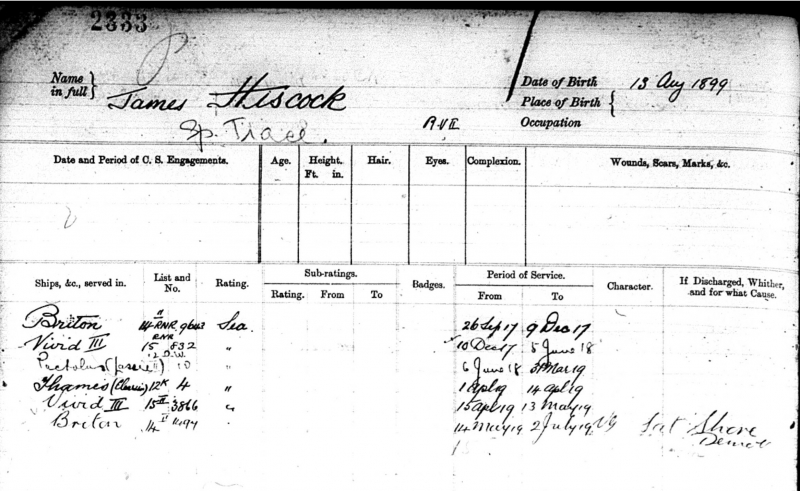 2333
Name in full} James Hiscock
Date of Birth 13 Aug 1899
Place of Birth {
Sp. R.V.II Occupation
Date and Period of C. S. Engagements. Age. Height. Ft. in. Hair. Eyes. Complexion. Wounds, Scars, Marks, &c.
Ships, &c., served in. List and No. Rating. Sub-ratings. Rating. From To Badges. Period of Service. From To Character. If Discharged, Whither, and for what Cause.
Briton 14 II RNR 9643 Sea. 26 Sep 17 9 Dec 17
Vivid III 15 RNR 832 " 10 Dec 17 5 June 18
10 " 6 June 18 31 Mar 19
Thames 12K 4 " 1 Apl 19 14 Apl 19
Vivid III 15 II 3866 " 15 Apl 19 13 May 19
Briton 14 II 14 May 19 2 July 19 VG Sat Shore
Demob